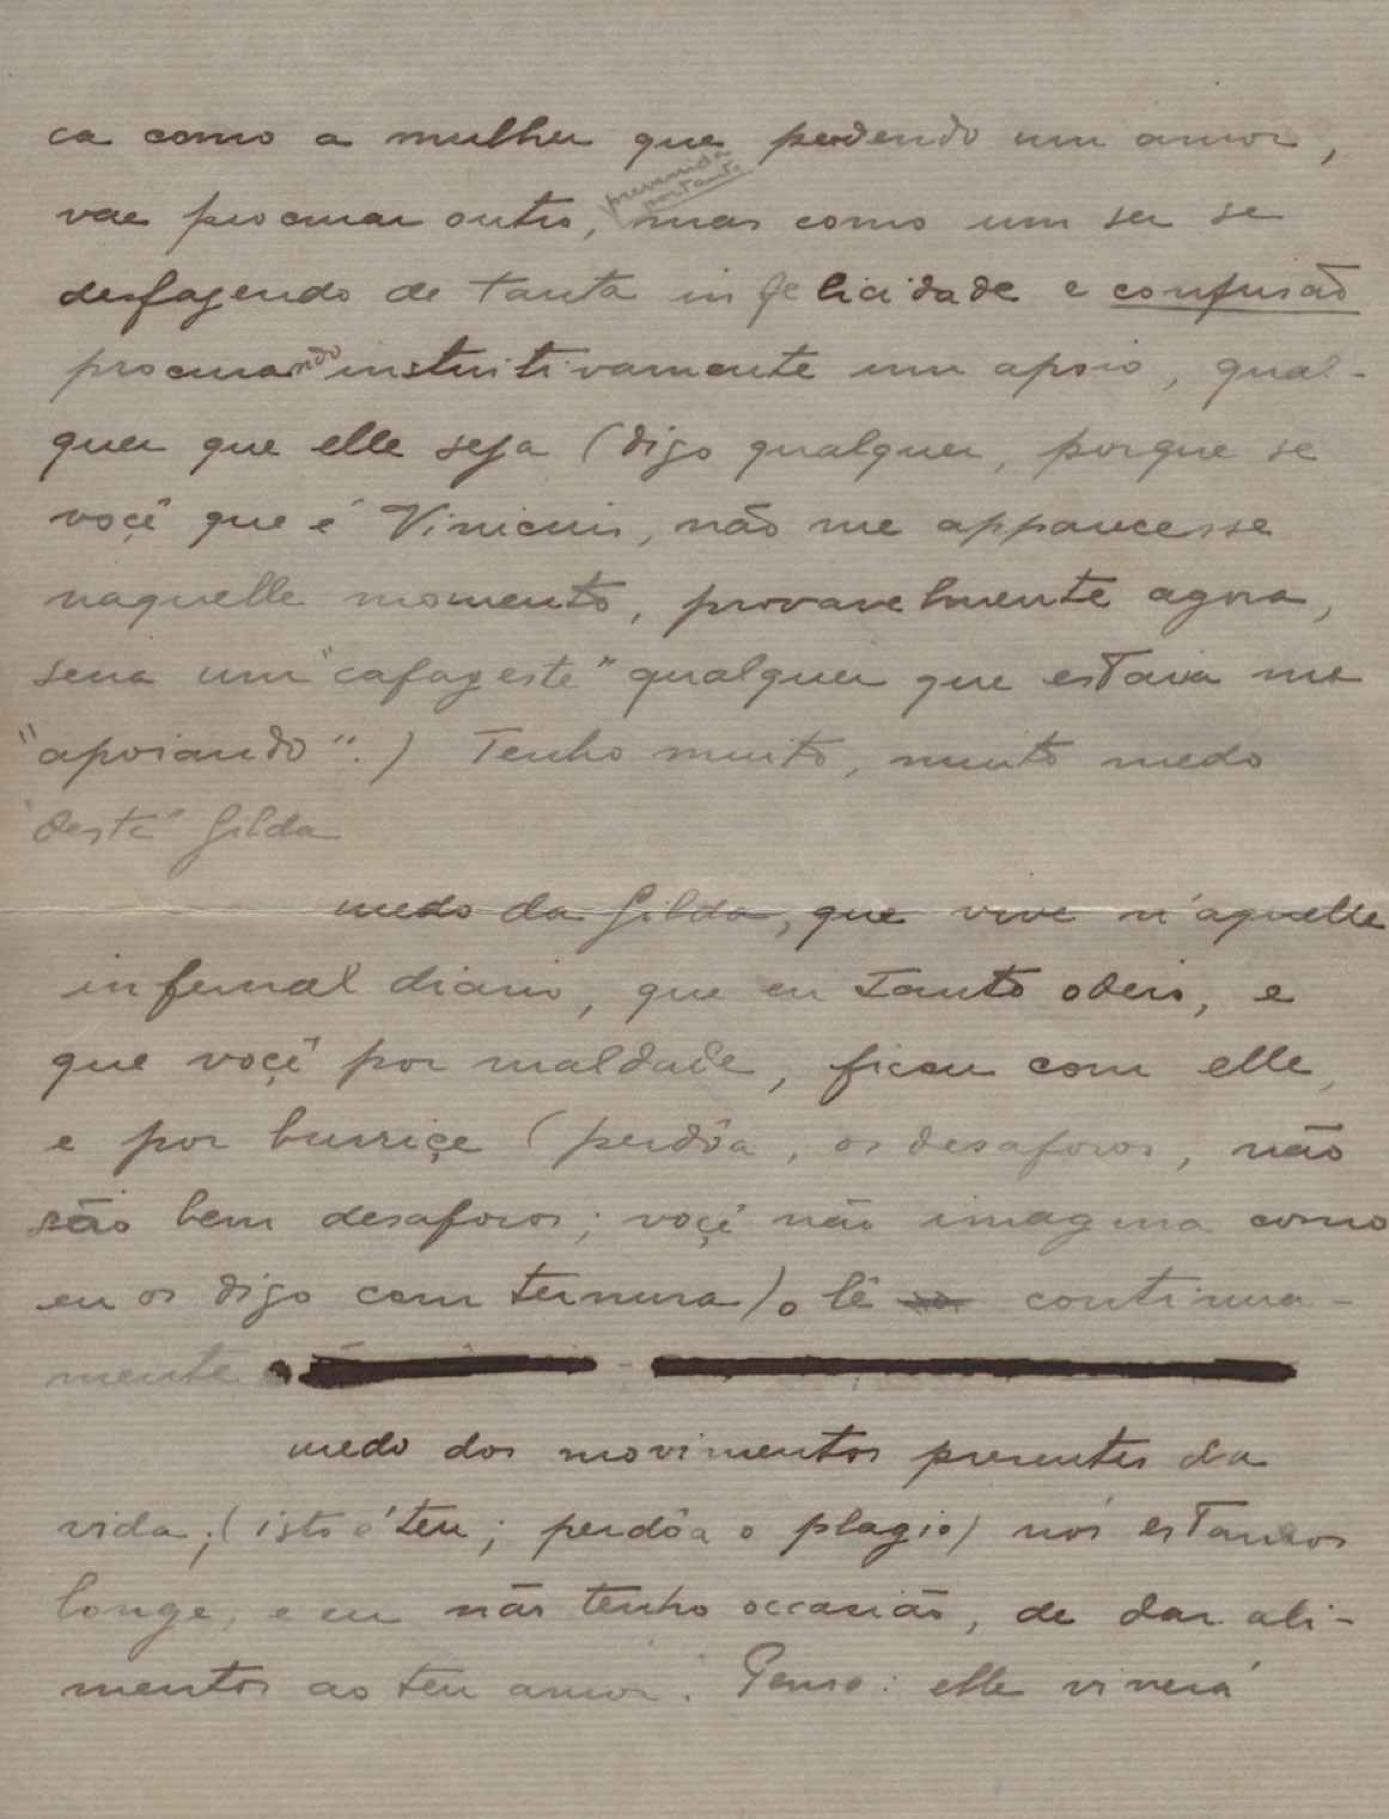 ca como a mulher que perdendo um amor,
vae procurar outro, mas como um ser se
desfazendo de tanta infelicidade e confusão
procurando instintivamente um apoio, qual-
quer que elle seja (digo qualquer, porque se
voçê que é Vinicius, não me apparecesse
naquelle momento, provavelmente agora,
seria um "cafageste" qualquer que estava me
"apoiando".) Tenho muito, muito medo
"desta" Gilda
medo da Gilda, que vive n'aquelle
infernal diario, que eu tanto odeio, e
que voçê por maldade, ficou com elle,
e por burriçe (perdôa, os desaforos, não
são bem desaforos; voçê não imagina como
eu os digo com ternura) o lê continua-
mente
medo dos movimentos presentes da
vida; (isto é teu; perdôa o plagio) nós estamos
longe, e eu não tenho occasião, de dar ali-
mentos ao teu amor. Penso: elle viverá